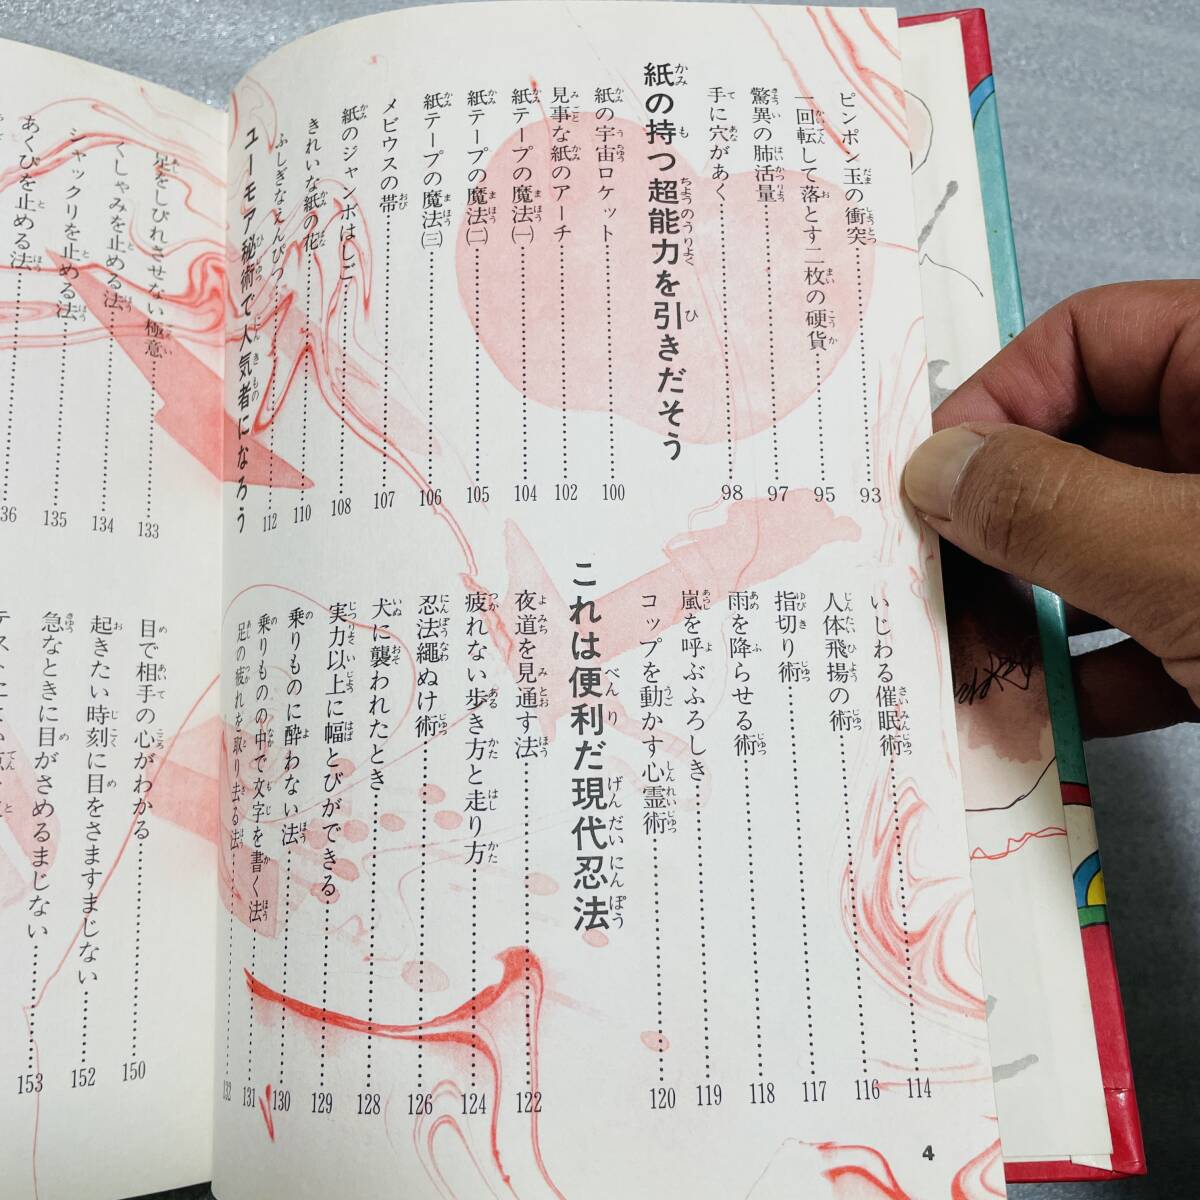 ピンポン玉の衝突……93
一回転して落とす二枚の硬貨……95
驚異の肺活量……97
手に穴があく……98
紙の持つ超能力を引きだそう
紙の宇宙ロケット……100
見事な紙のアーチ……102
紙テープの魔法㈠……104
紙テープの魔法㈡……105
紙テープの魔法㈢……106
メビウスの帯……107
紙のジャンボはしご……108
きれいな紙の花……110
ふしぎなえんぴつ……112
ユーモア秘術で人気者になろう
いじわる催眠術……114
人体飛揚の術……116
指切り術……117
雨を降らせる術……118
嵐を呼ぶふろしき……119
コップを動かす心霊術……120
これは便利だ現代忍法
夜道を見通す法……122
疲れない歩き方と走り方……124
忍法繩ぬけ術……126
犬に襲われたとき……128
実力以上に幅とびができる……129
乗りものに酔わない法……130
乗りものの中で文字を書く法……131
足の疲れを取り去る法……132
4
足をしびれさせない極意……133
くしゃみを止める法……134
シャックリを止める法……135
あくびを止める法……136
目で相手の心がわかる……150
起きたい時刻に目をさますまじない……152
急なときに目がさめるまじない……153